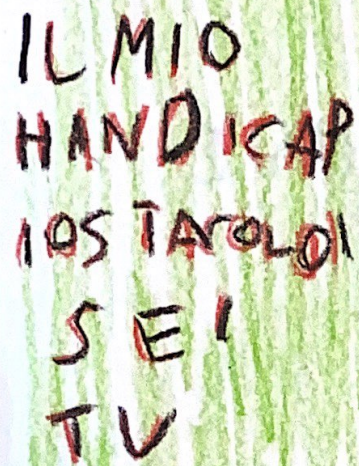 IL MIO
HANDICAP
IOSTACOLOI
SEI
TU